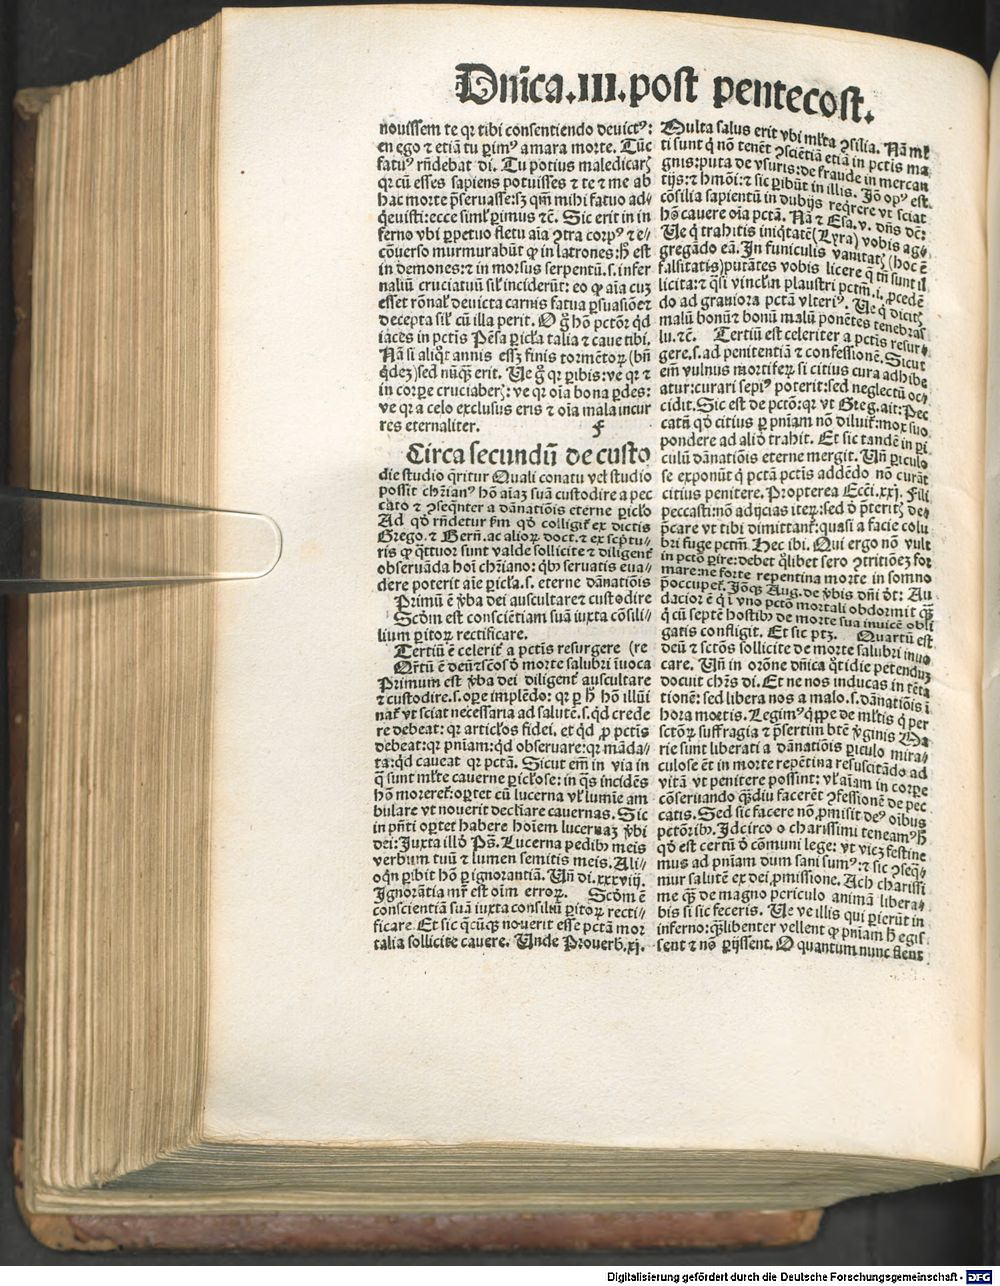 Dnica.III.post pentecost.
nouissem te qꝛ tibi consentiendo deuictꝰ:
en ego ⁊ etiā tu ꝑimꝰ amara morte. Tūc
fatuꝰ rn̄debat di. Tu potius maledicarꝫ
qꝛ cū esses sapiens potuisses ⁊ te ⁊ me ab
hac morte p̄seruasse: sꝫ qm̄ mihi fatuo ad-
q̇euisti: ecce siml̓ ꝑimus ⁊c̄. Sic erit in in
ferno vbi ꝑpetuo fletu aīa ꝯtra corpꝰ ⁊ e-
cōuerso murmurabūt ꝙ in latrones: hͦ est
in demones: ⁊ in morsus serpentū.s. infer
naliū cruciatuū sil̓ inciderūt: eo ꝙ aīa cuꝫ
esset rōnal̓ deuicta carnis fatua ꝑsuasiōe⁊
decepta sil̓ cū illa perit. O gͦ hō pctōr qd
iaces in pctīs Pēsa ꝑicl̓a talia ⁊ caue tibi.
Nā si aliqͦt annis essꝫ finis tormētoꝝ (bn̄
q̇deꝫ) sed nūqꝫ erit. Ue gͦ qꝛ ꝑibis: ve qꝛ ⁊
in corꝑe cruciaberꝫ: ve qꝛ oīa bona ꝑdes:
ve qꝛ a celo exclusus eris ⁊ oīa mala incur
res eternaliter. f
Circa secundū de custo
die studio q̄ritur Quali conatu vel̓ studio
possit chr̄ianꝰ hō aīaꝫ suā custodire a pec
cato ⁊ ꝯseqnter a dānatiōis eterne ꝑicl̓o
Ad qͦ rn̄detur fm̄ qͦ colligit̄ ex dictis
Grego. ⁊ Bern̄. ac alioꝝ doct. ⁊ ex scp̄tu-
ris ꝙ q̄ttuor sunt valde sollicite ⁊ diligent̄
obseruāda hoī chr̄iano: qbꝫ seruatis eua-
dere poterit aīe ꝑicl̓a.s. eterne dānatiōis
Primū ē v̄ba dei auscultare⁊ custodire
Scd̄m est conscientiam suā iuxta cōsili-
lium ꝑitoꝝ rectificare.
Tertiū ē celerit̄ a pctīs resurgere (re
Qrtū ē deū⁊scōs ꝓ morte salubri īuoca
Primum est v̄ba dei diligent̄ auscultare
⁊ custodire.s. oꝑe implēdo: qꝛ ꝑ hͦ hō illūi
nat̄ vt sciat necessaria ad salutē.s. qd crede
re debeat: qꝛ articl̓os fidei. et qd ꝓ pctīs
debeat: qꝛ pn̄iam: qd obseruare: qꝛ māda-
ta: qd caueat qꝛ pctā. Sicut em̄ in via in
q̄ sunt ml̓te cauerne ꝑicl̓ose: in qͣs incidēs
hō moreret̄: oꝑtet cū lucerna vl̓ lumīe am
bulare vt nouerit declīare cauernas. Sic
in pn̄ti oꝑtet habere hoīem lucernaꝫ v̄bi
dei: Juxta illd̓ Ps̄. Lucerna pedibꝫ meis
verbum tuū ⁊ lumen semitis meis. Ali-
oqn ꝑibit hō ꝑ ignorantiā. Un̄ di.xxxviij.
Ignorātia mr̄ est oīm erroꝝ. Scd̄m ē
conscientiā suā iuxta consiliū ꝑitoꝝ recti-
ficare. Et sic qcūqꝫ nouerit esse pctā mor
talia sollicite cauere. Unde Prouerb.xj.
Multa salus erit vbi ml̓ta ꝯsilia. Nā ml̓
ti sunt q̇ nō tenēt ꝯsciētiā etiā in pctīs ma
gnis: puta de vsuris: de fraude in mercan
tijs: ⁊ hmōi: ⁊ sic ꝑibūt in illis. Jō opꝰ est
cōsilia sapientū in dubijs reqͥrere vt sciat
hō cauere oīa pctā. Nā ⁊ Esa.v. dn̄s dc̄:
Ue q̇ trahitis iniq̇tatē (Lyra) vobis ag-
gregādo eā. In funiculis vanitatꝫ (hoc ē
falsitatis) putātes vobis licere q̄ tn̄ sunt il
licita: ⁊ q̄si vincl̓m plaustri pctm̄.i. ꝓcedē
do ad grauiora pctā vlteriꝰ. Ue q̇ dicitꝫ
malū bonū ⁊ bonū malū ponētes tenebras
lu.⁊c̄. Tertiū est celeriter a pctīs resur-
gere.s. ad penitentiā ⁊ confessionē. Sicut
em̄ vulnus mortiferꝝ si citius cura adhibe
atur: curari sepiꝰ poterit: sed neglectū oc-
cidit. Sic est de pctō: qꝛ vt Greg. ait: Pec
catū qͦ citius ꝑ pn̄iam nō diluit̄: mox suo
pondere ad aliō trahit. Et sic tandē in ꝑi
culū dānatiōis eterne mergit. Un̄ ꝑiculo
se exponūt q̇ pctā pctīs addēdo nō curāt
citius penitere. Propterea Ecc̄i.xxj. Fili
peccasti: nō adijcias iteꝝ: sed ꝺ p̄teritꝫ de-
p̄care vt tibi dimittant̄: quasi a facie colu
bri fuge pctm̄. Hec ibi. Qui ergo nō vult
in pctō ꝑire: debet q̇libet sero ꝯtritiōeꝫ for
mare: ne forte repentina morte in somno
p̄occupet̄. Jōqꝫ Aug. de v̄bis dn̄i dt̄: Au
dacior ē q̇ ī vno pctō mortali obdormit qꝫ
q̇ cū septē hostibꝫ de morte sua inuicē obli
gatis confligit. Et sic ptꝫ. Quartū est
deū ⁊ sctōs sollicite de morte salubri inuo
care. Un̄ in orōne dn̄ica q̇tidie petenduꝫ
docuit chr̄s di. Et ne nos inducas in tētā
tionē: sed libera nos a malo.s. dānatiōis ī
hora mortis. Legimꝰ qͥꝑpe de ml̓tis q̇ per
sctōꝝ suffragia ⁊ p̄sertim btē v̄ginis Ma
rie sunt liberati a dānatiōis ꝑiculo mira-
culose ēt in morte repētina resuscitādo ad
vitā vt penitere possint: vl̓ aīam in corꝑe
cōseruando qꝫdiu facerēt ꝯfessionē de pec
catis. Sed sic facere nō ꝓmisit deꝰ oībus
pctōribꝫ. Idcirco o charissimi teneamꝰ hͦ
qͦ est certū ꝺ cōmuni lege: vt vicꝫ festine
mus ad pn̄iam dum sani sumꝰ: ⁊ sic ꝯseq̄-
mur salutē ex dei ꝓmissione. Ach charissi
me qꝫ de magno periculo animā libera-
bis si sic feceris. Ue ve illis qui ꝑierūt in
inferno: qꝫ libenter vellent ꝙ pn̄iam hͦ egis
sent ⁊ nō ꝑijssent. O quantum nunc flent
Digitalisierung gefördert durch die Deutsche Forschungsgemeinschaft - DFG